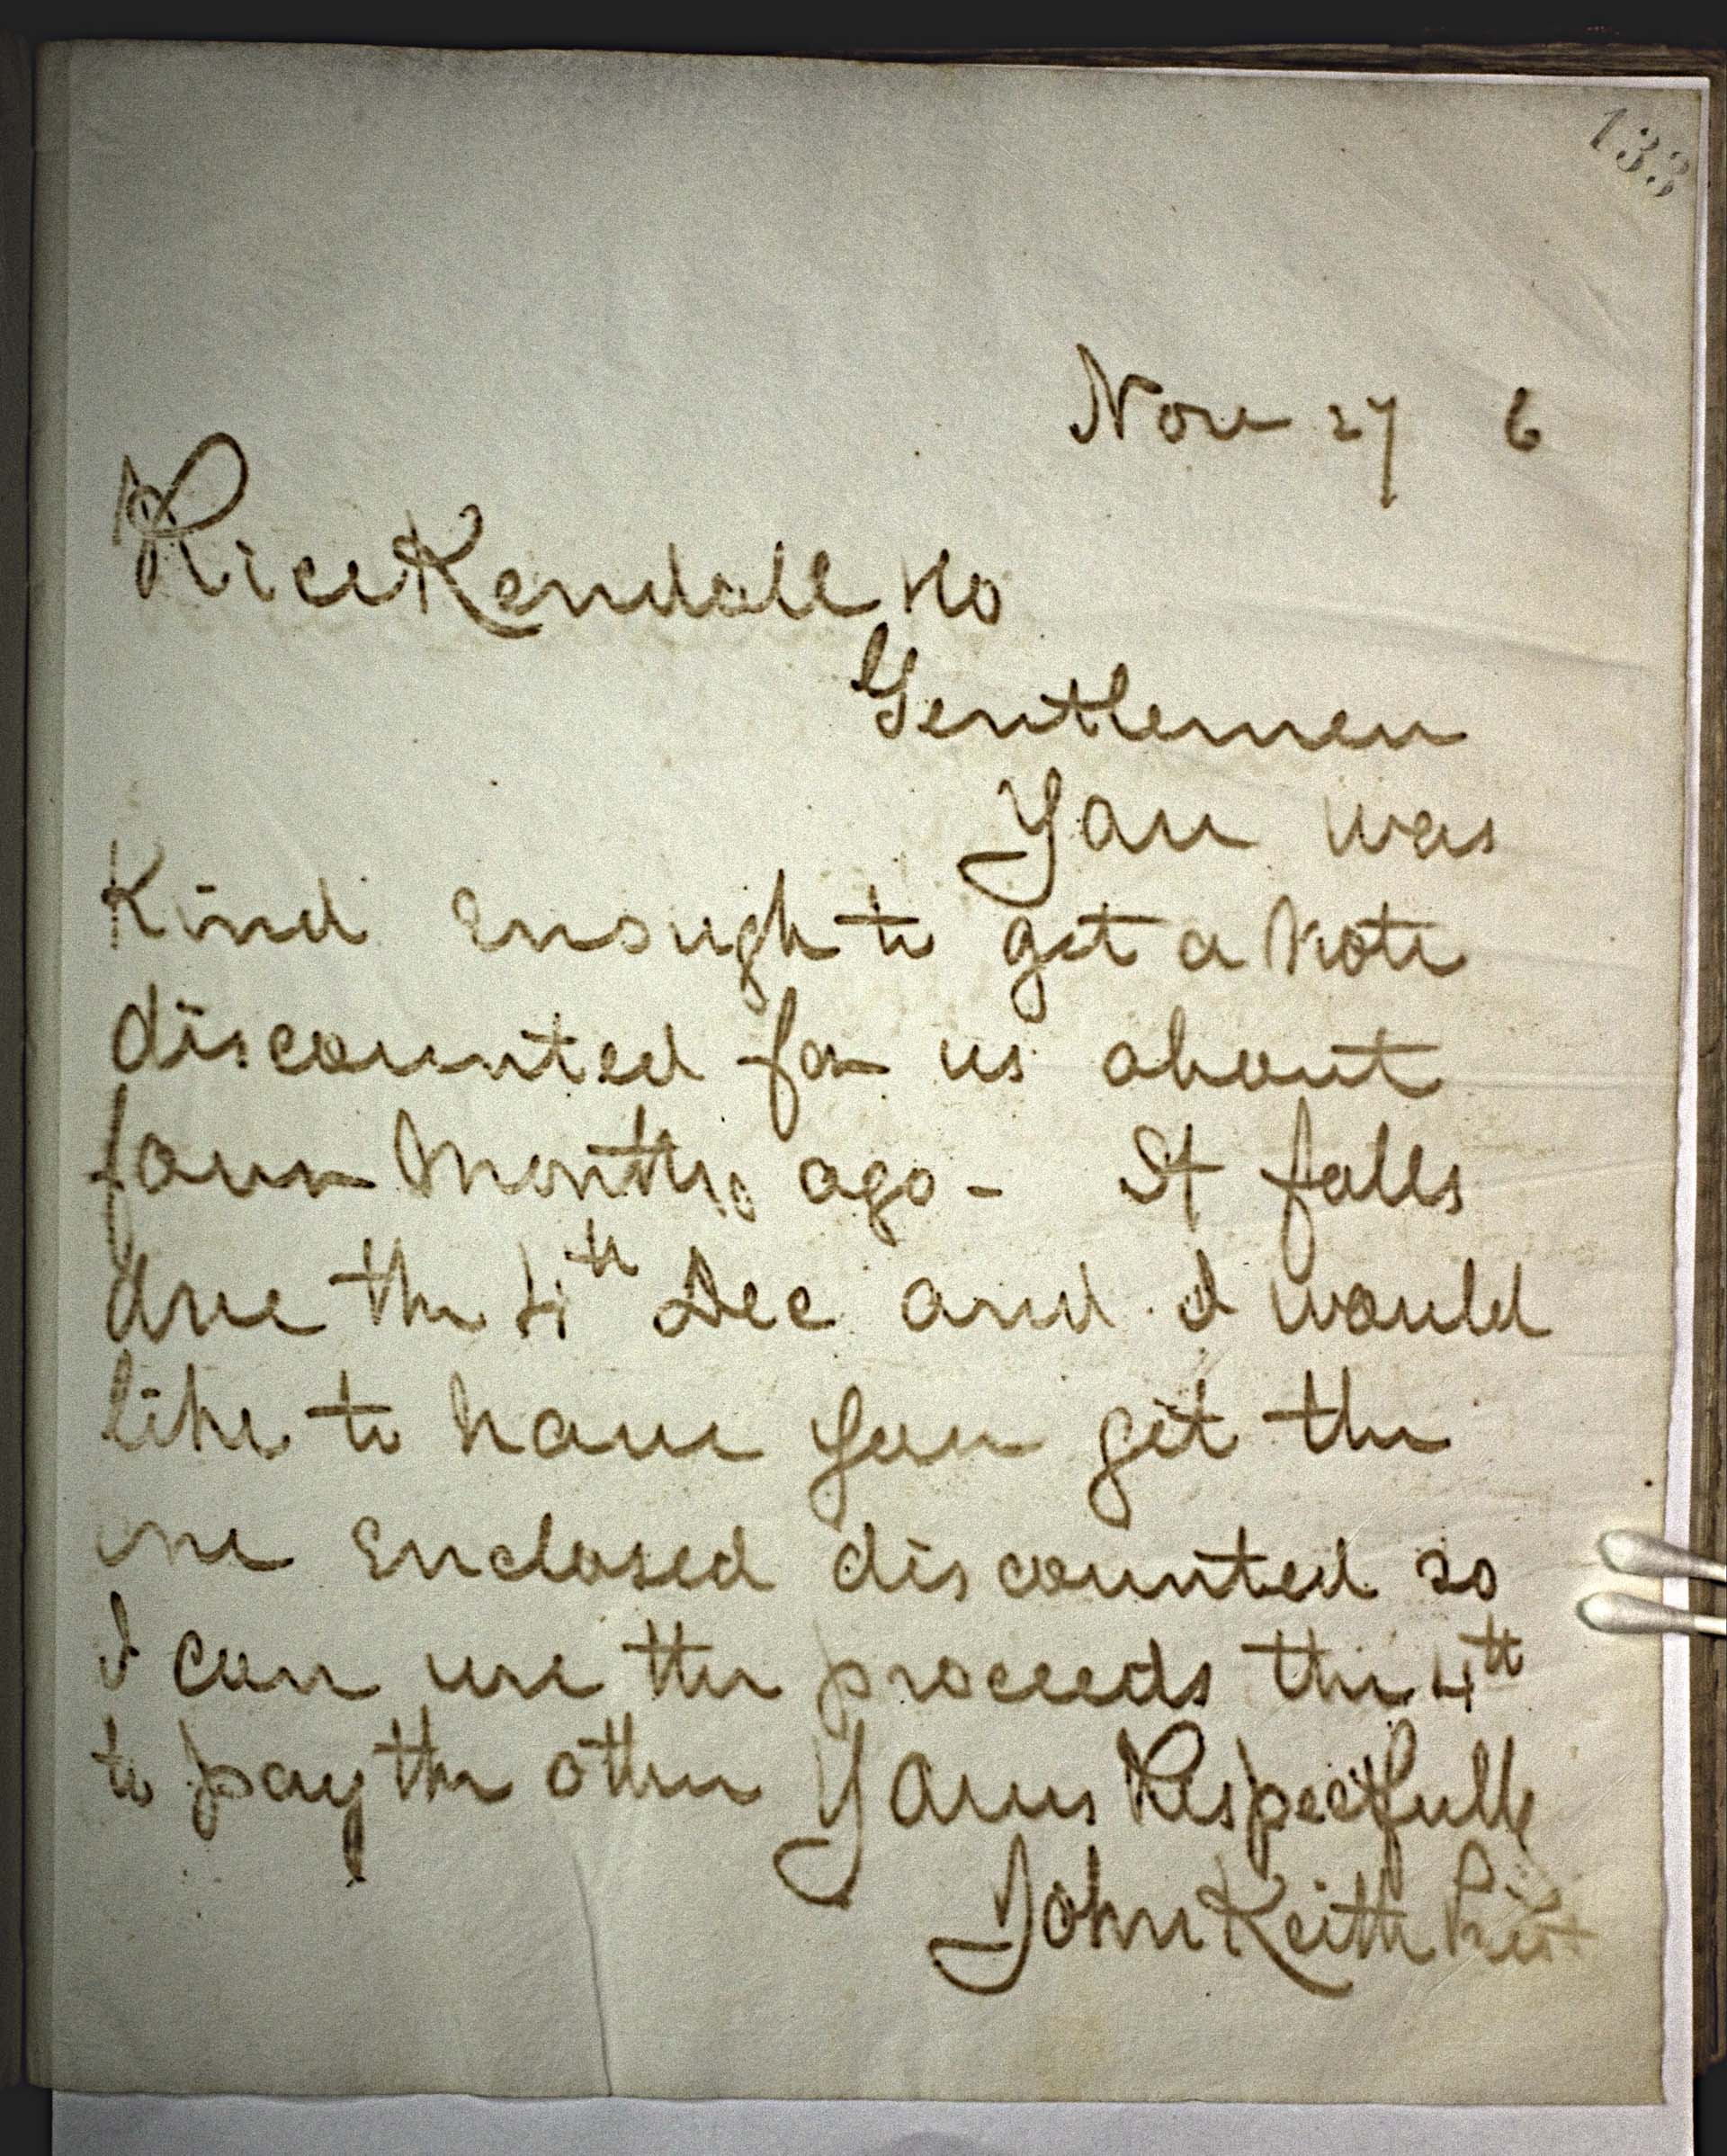 133
Nov 27 6
Rice Kendall Co
Gentlemen
You was
Kind enough to get a Note
discounted for us about
four Months ago - It falls
due the 4th Dec and I would
like to have you get the
one enclosed discounted so
I can use the proceeds the 4th
to pay the other Yours Respectfully
John Keith